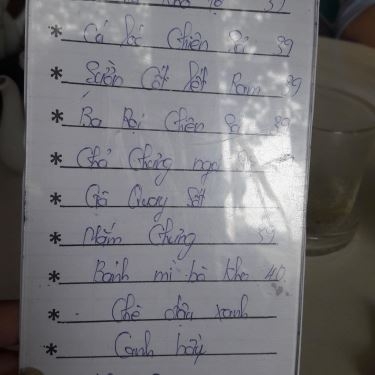 kho tộ 39
* Cá lóc chiên sả 39
* Sườn cốt lết Ram 39
* Ba Rọi chiên sả 39
* Chả Chưng
* Gà Quay
* Mắm Chưng 39
* Bánh mì bò kho 40
* Chè đậu xanh
* Canh bầu